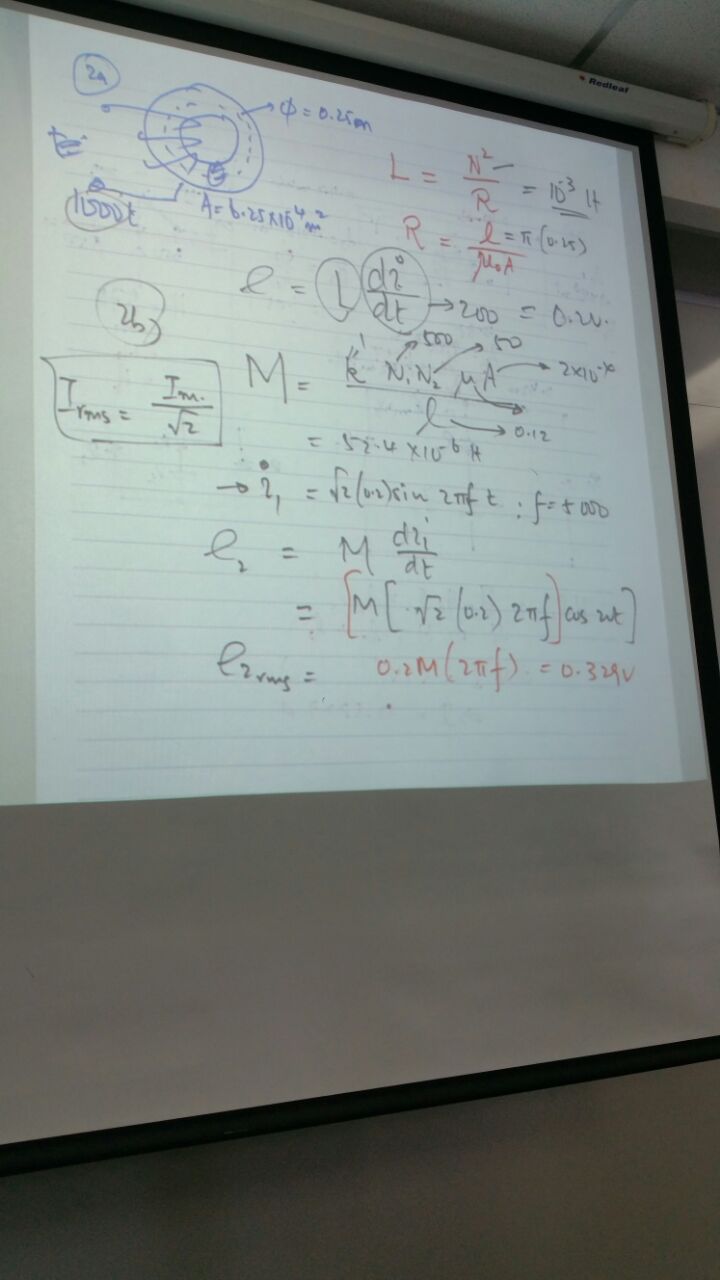 Redleaf
2a
ϕ = 0.25m
1000t
A = 6.25×10⁻⁴ m²
L = N²/R = 10⁻³ H
R = l/μ₀A = π(0.25)
e = L di/dt → 200 = 0.2V.
2b)
I_rms = I_m./√2
M = k N₁N₂ μA / l
1
500
50
0.12
= 52.4 × 10⁻⁶ H
→ i₁ = √2 (0.2) sin 2πf t ; f = 5000
e₂ = M di₁/dt
= [M [√2 (0.2) 2πf] cos ωt]
e₂rms = 0.2M(2πf) = 0.329V